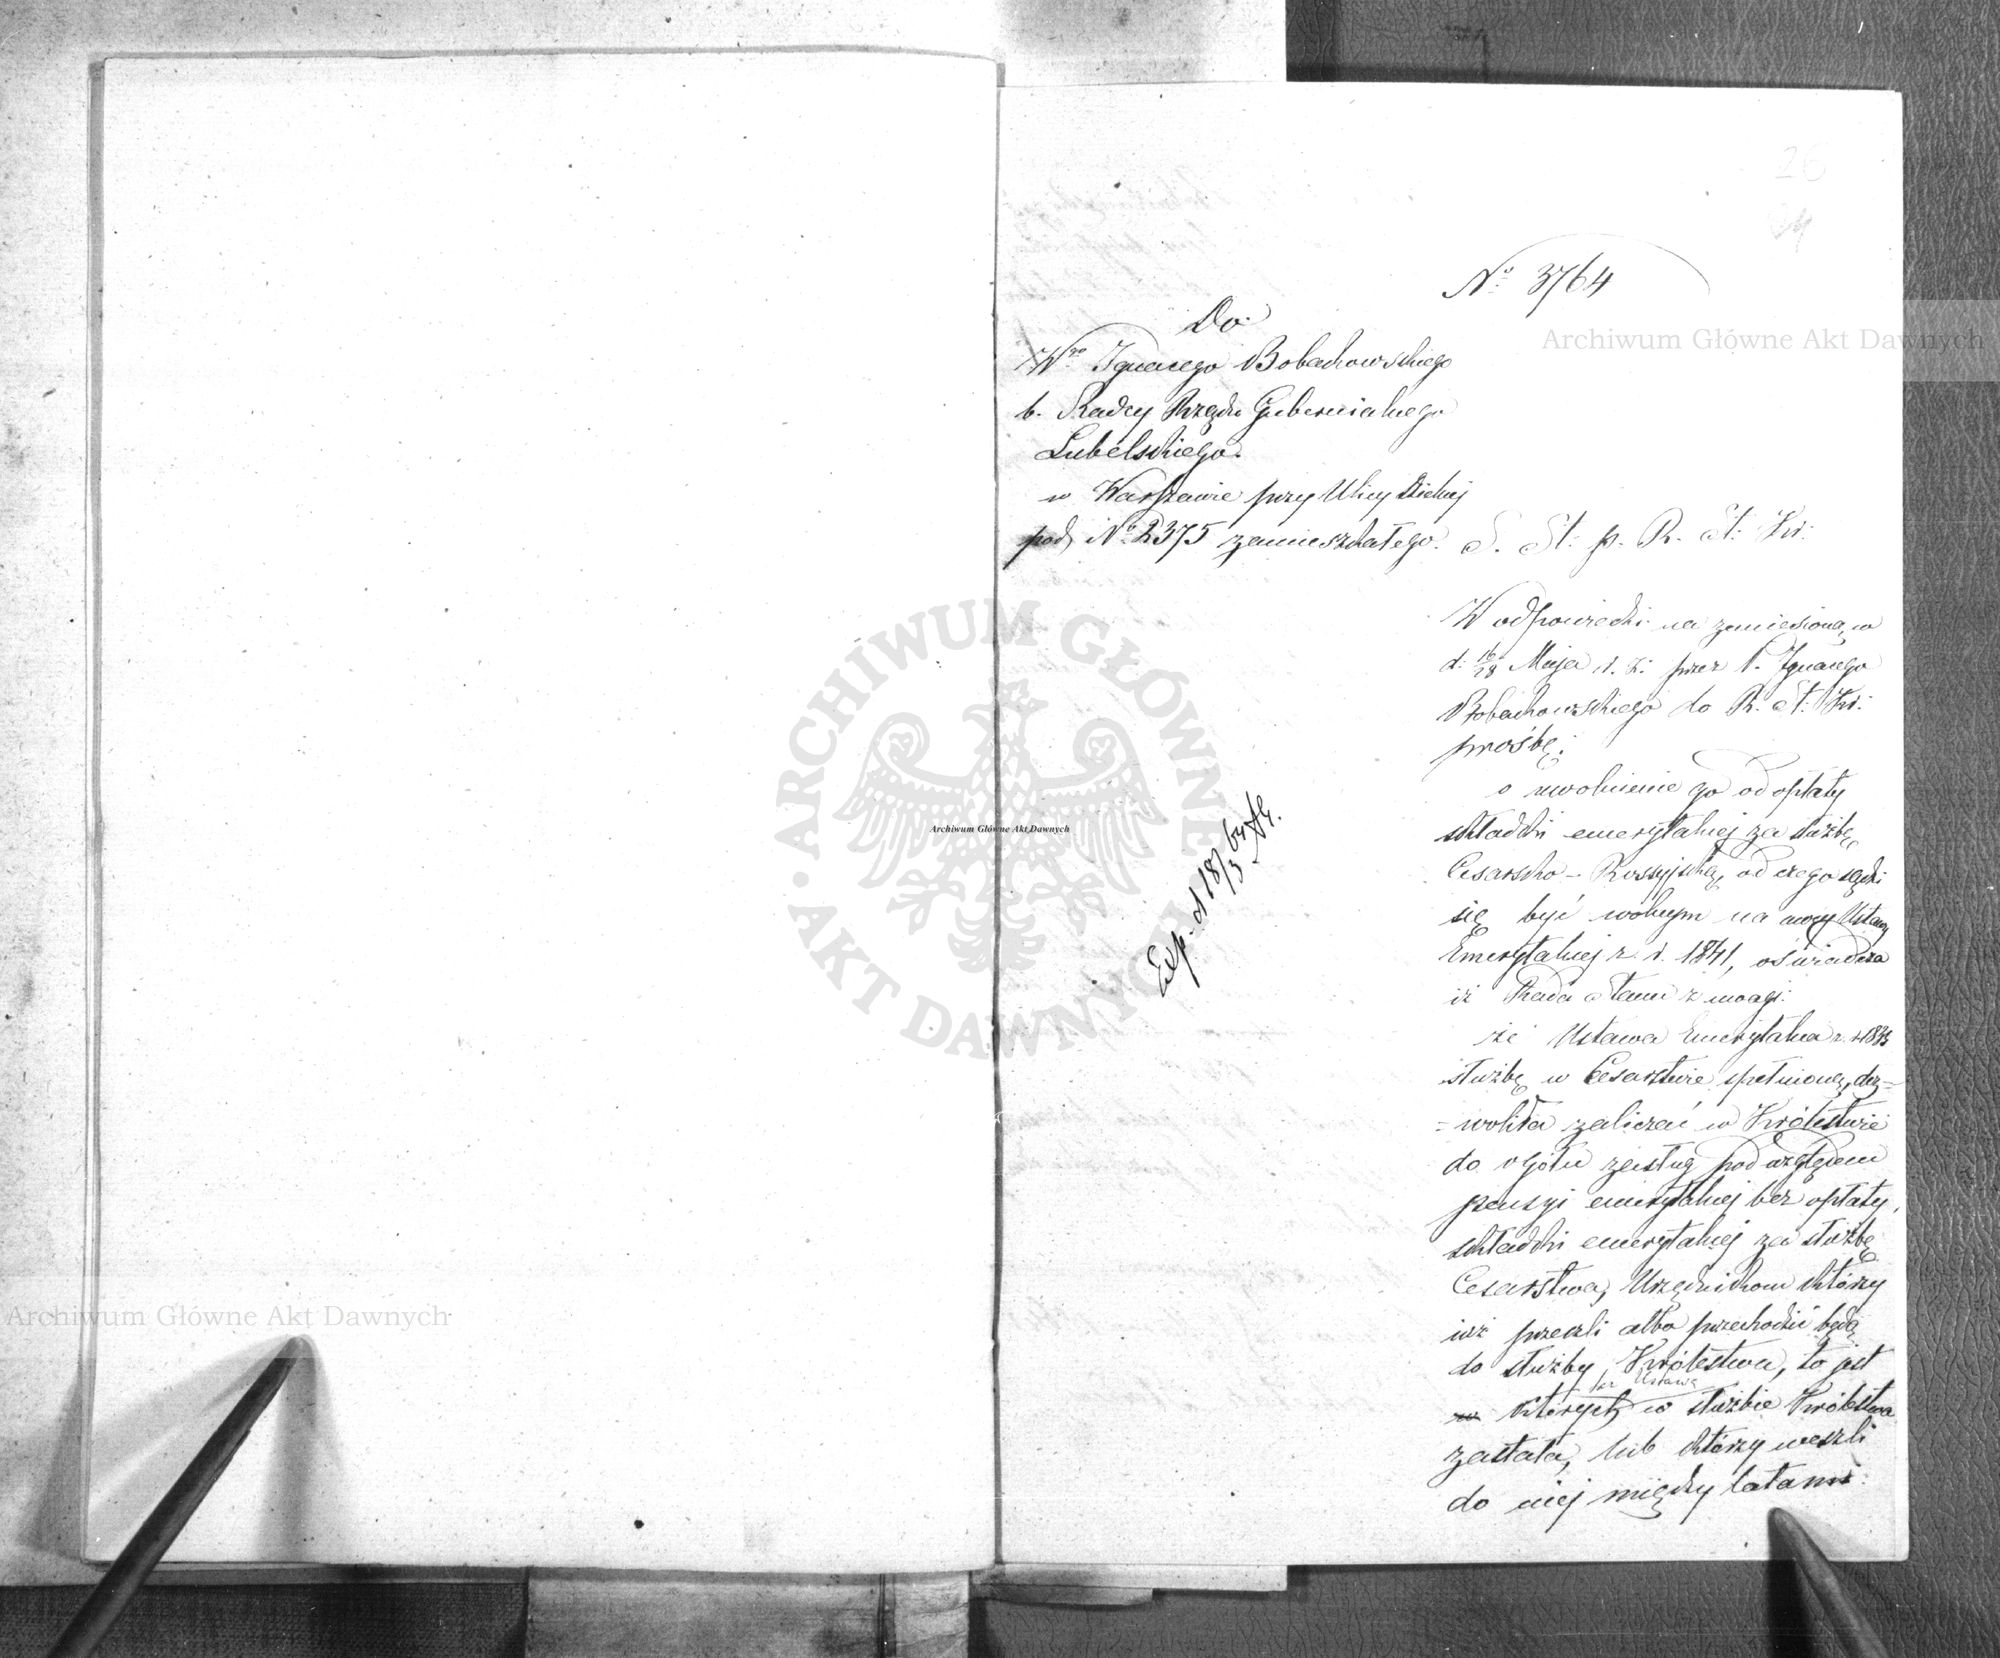 26
24
Nº 3764
Do
Wgo Ignacego Bobachowskiego
b. Radcy Rządu Gubernialnego
Lubelskiego.
w Warszawie przy Ulicy Dzielnej
pod Nº 2375 zamieszkałego.
S. St: p. R. St: Kr:
W odpowiedzi na zaniesioną w
d: 16/28 Maja r. z. przez P. Ignacego
Bobachowskiego do R. St: Kr:
prośbę;
o uwolnienie go od opłaty
składki emerytalnej za służbę
Cesarsko-Rossyjską, od czego sądzi
się być wolnym na mocy Ustawy
Emerytalnej z r. 1841, oświadcza
iż Rada Stanu z uwagi:
że Ustawa Emerytalna z r. 1841
służbę w Cesarstwie spełnioną, doz=
=woliła zaliczać w Królestwie
do ogółu zasług pod względem
pensyi emerytalnej bez opłaty
składki emerytalnej za służbę
Cesarstwa, Urzędnikom którzy
już przeszli albo przechodzić będą
do służby Królestwa, to jest
których ta Ustawa w służbie Królestwa
zastała, lub którzy weszli
do niej między latami
Exp. d 18/3 64
Archiwum Główne Akt Dawnych
Archiwum Główne Akt Dawnych
Archiwum Główne Akt Dawnych
ARCHIWUM GŁÓWNE AKT DAWNYCH